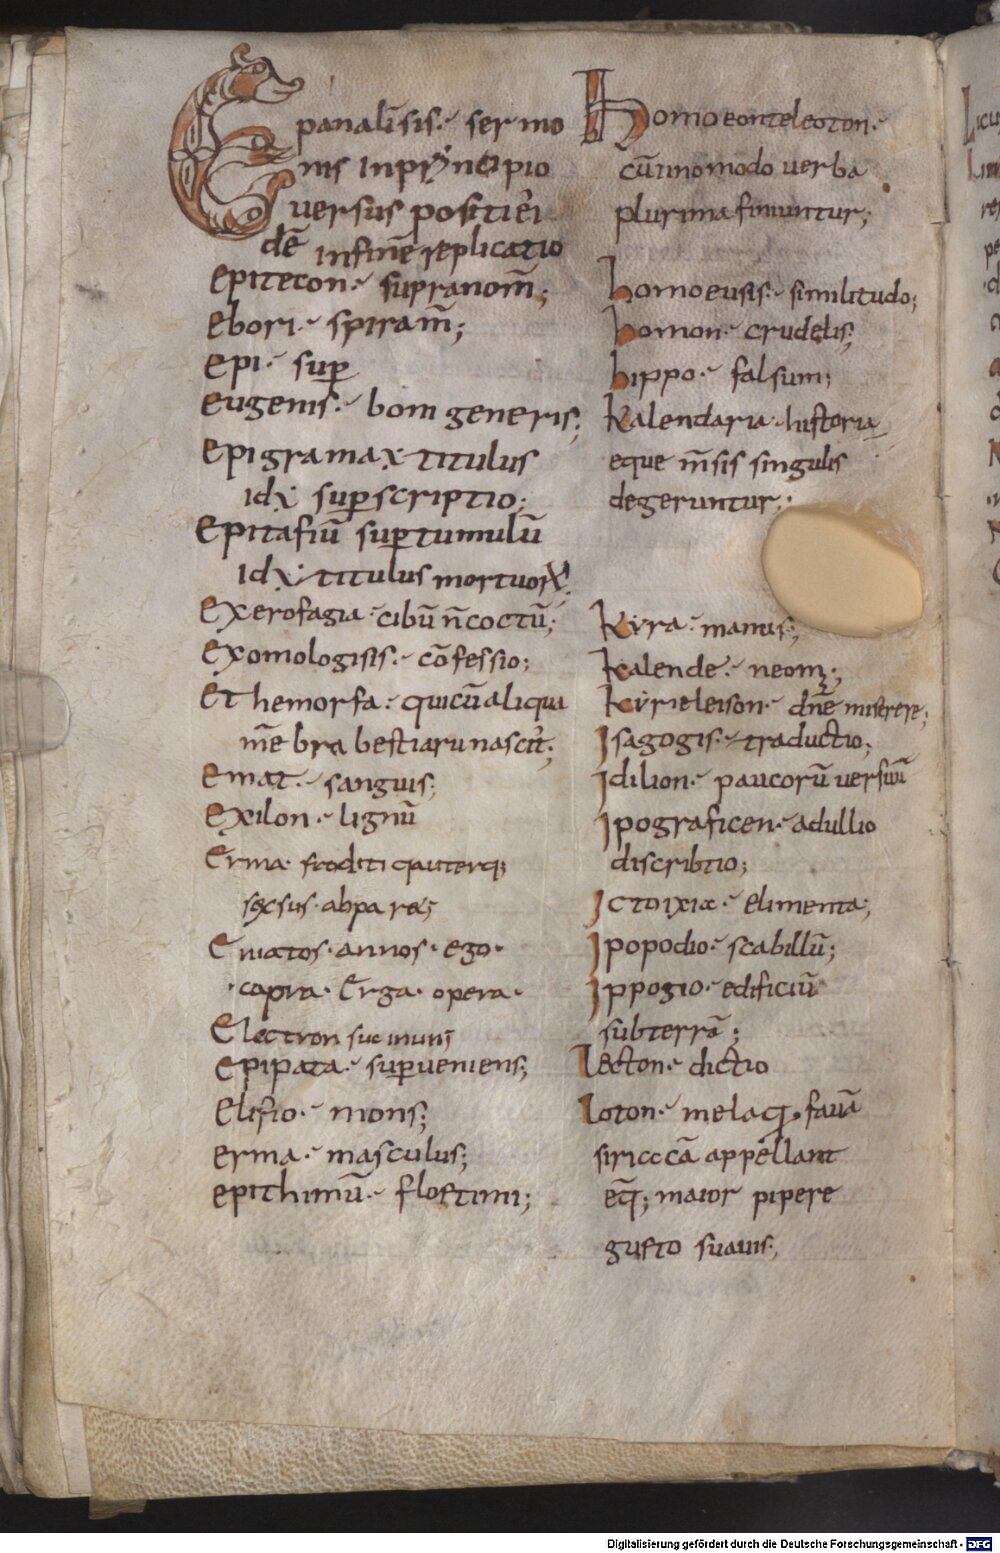 Epanalẽsis·~ sermo
nis inprincipio
versus positi eı
dẽ infine replicatio
Epiteton·~ supranom̃;
Ebori·~ spiram̃;
Epi·~ sup̱
Eugenis·~ boni generis;
Epigrama·~ titulus
id· sup̱scriptio;
Epitafiũ sup̱tumulũ
id· titulus mortuoꝝ
Exerofagia·~ cibũ ñcoctũ;
Exomologisis·~ cõfessio;
Et hemorfa·~ quicũaliqua
mẽbra bestiarunascit̃;
Emat·~ sanguis;
Exilon·~ lignũ
Erma· froditi q·uterq;
sexsus·
Eniatos·annos·ego·
·capra· Erga· opera·
Electron sucinum
Epipata·~ sup̱veniens;
Elifio·~ mons;
erma·~ masculus;
epithimũ·~ flostimi;
Homoeonteleoton·~
cũ unomodo verba
plurima finiuntur;
homoeusis·~ similitudo;
homon·~ crudelis;
hippo·~ falsum;
Kalendaria·~ historia
eque m̃sis singulis
degeruntur;
Kyra·~ manus;
Kalende·~ neom;
Kyrieleison·~ dñe miserere;
Isagogis·~ traductio;
Idilion·~ paucorũ versuũ
Ipograficen·~ adullio
discribtio;
Ictoixia·~ elimenta;
Ipopodio·~ scabillũ;
Ippogio·~ edificiũ
subterrã;
Lecton·~ dictio
Loton·~ melaq· favã
siriccã appellant
eq̃; maior pipere
gusto suavis;
Digitalisierung gefördert durch die Deutsche Forschungsgemeinschaft - DFG